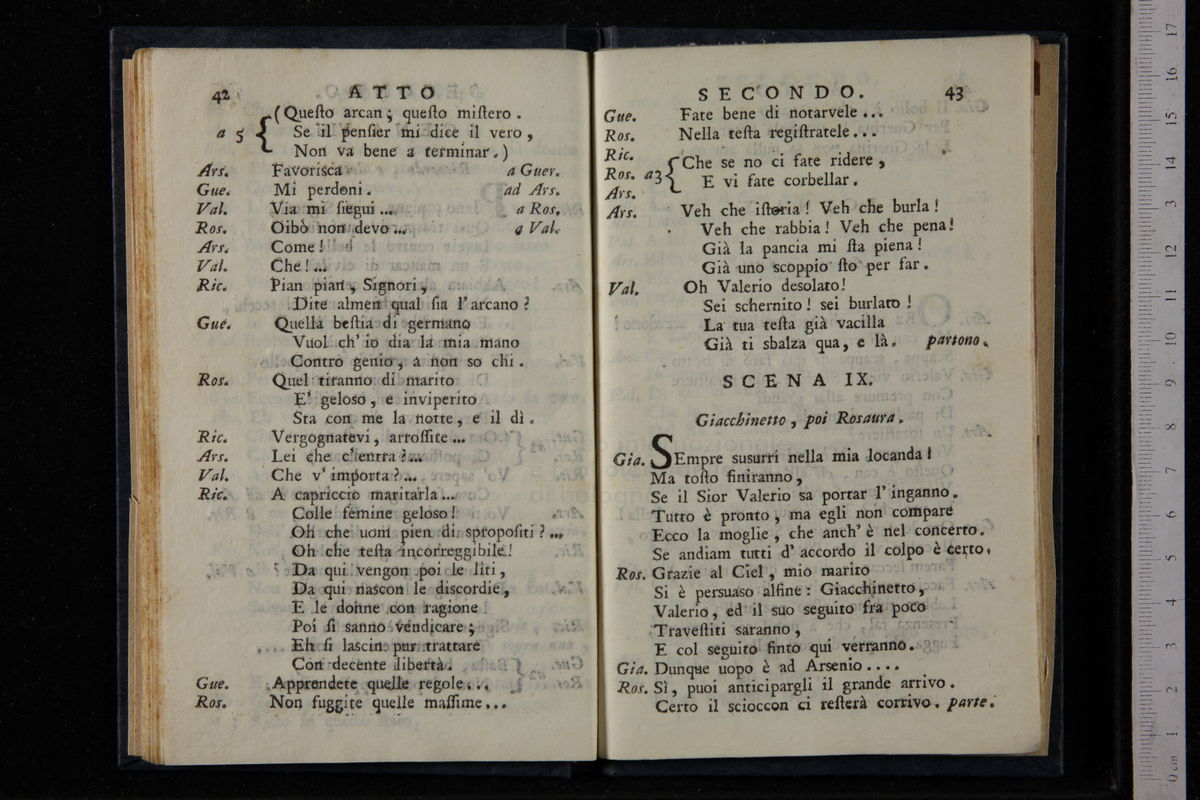 42 ATTO
(Queſto arcan; queſto miſtero.
a 5 { Se il penſier mi dice il vero,
Non va bene a terminar.)
Ars. Favoriſca a Guer.
Gue. Mi perdoni. ad Ars.
Val. Via mi ſiegui... a Ros.
Ros. Oibò non devo... a Val.
Ars. Come!
Val. Che!...
Ric. Pian pian, Signori,
Dite almen qual ſia l'arcano?
Gue. Quella beſtia di germano
Vuol ch'io dia la mia mano
Contro genio, a non so chi.
Ros. Quel tiranno di marito
E' geloso, e inviperito
Sta con me la notte, e il dì.
Ric. Vergognatevi, arroſſite...
Ars. Lei che c'entra?...
Val. Che v'importa?...
Ric. A capriccio maritarla...
Colle femine geloso!
Oh che uom pien di spropoſiti?...
Oh che teſta incorreggibile!
Da qui vengon poi le liti,
Da qui nascon le discordie,
E le donne con ragione
Poi ſi sanno vendicare;
Eh ſi lascin pur trattare
Con decente libertà.
Gue. Apprendete quelle regole...
Ros. Non fuggite quelle maſſime...
SECONDO. 43
Gue. Fate bene di notarvele...
Ros. Nella teſta regiſtratele...
Ric.
Ros. a3 { Che se no ci fate ridere,
Ars. E vi fate corbellar.
Ars. Veh che iſtoria! Veh che burla!
Veh che rabbia! Veh che pena!
Già la pancia mi ſta piena!
Già uno scoppio ſto per far.
Val. Oh Valerio desolato!
Sei schernito! sei burlato!
La tua teſta già vacilla
Già ti sbalza qua, e là. partono.
SCENA IX.
Giacchinetto, poi Rosaura.
Gia. SEmpre susurri nella mia locanda!
Ma toſto finiranno,
Se il Sior Valerio sa portar l'inganno.
Tutto è pronto, ma egli non compare
Ecco la moglie, che anch'è nel concerto.
Se andiam tutti d'accordo il colpo è certo.
Ros. Grazie al Ciel, mio marito
Si è persuaso alfine: Giacchinetto,
Valerio, ed il suo seguito fra poco
Traveſtiti saranno,
E col seguito finto qui verranno.
Gia. Dunque uopo è ad Arsenio....
Ros. Sì, puoi anticipargli il grande arrivo.
Certo il scioccon ci reſterà corrivo. parte.
0 cm 1 2 3 4 5 6 7 8 9 10 11 12 13 14 15 16 17